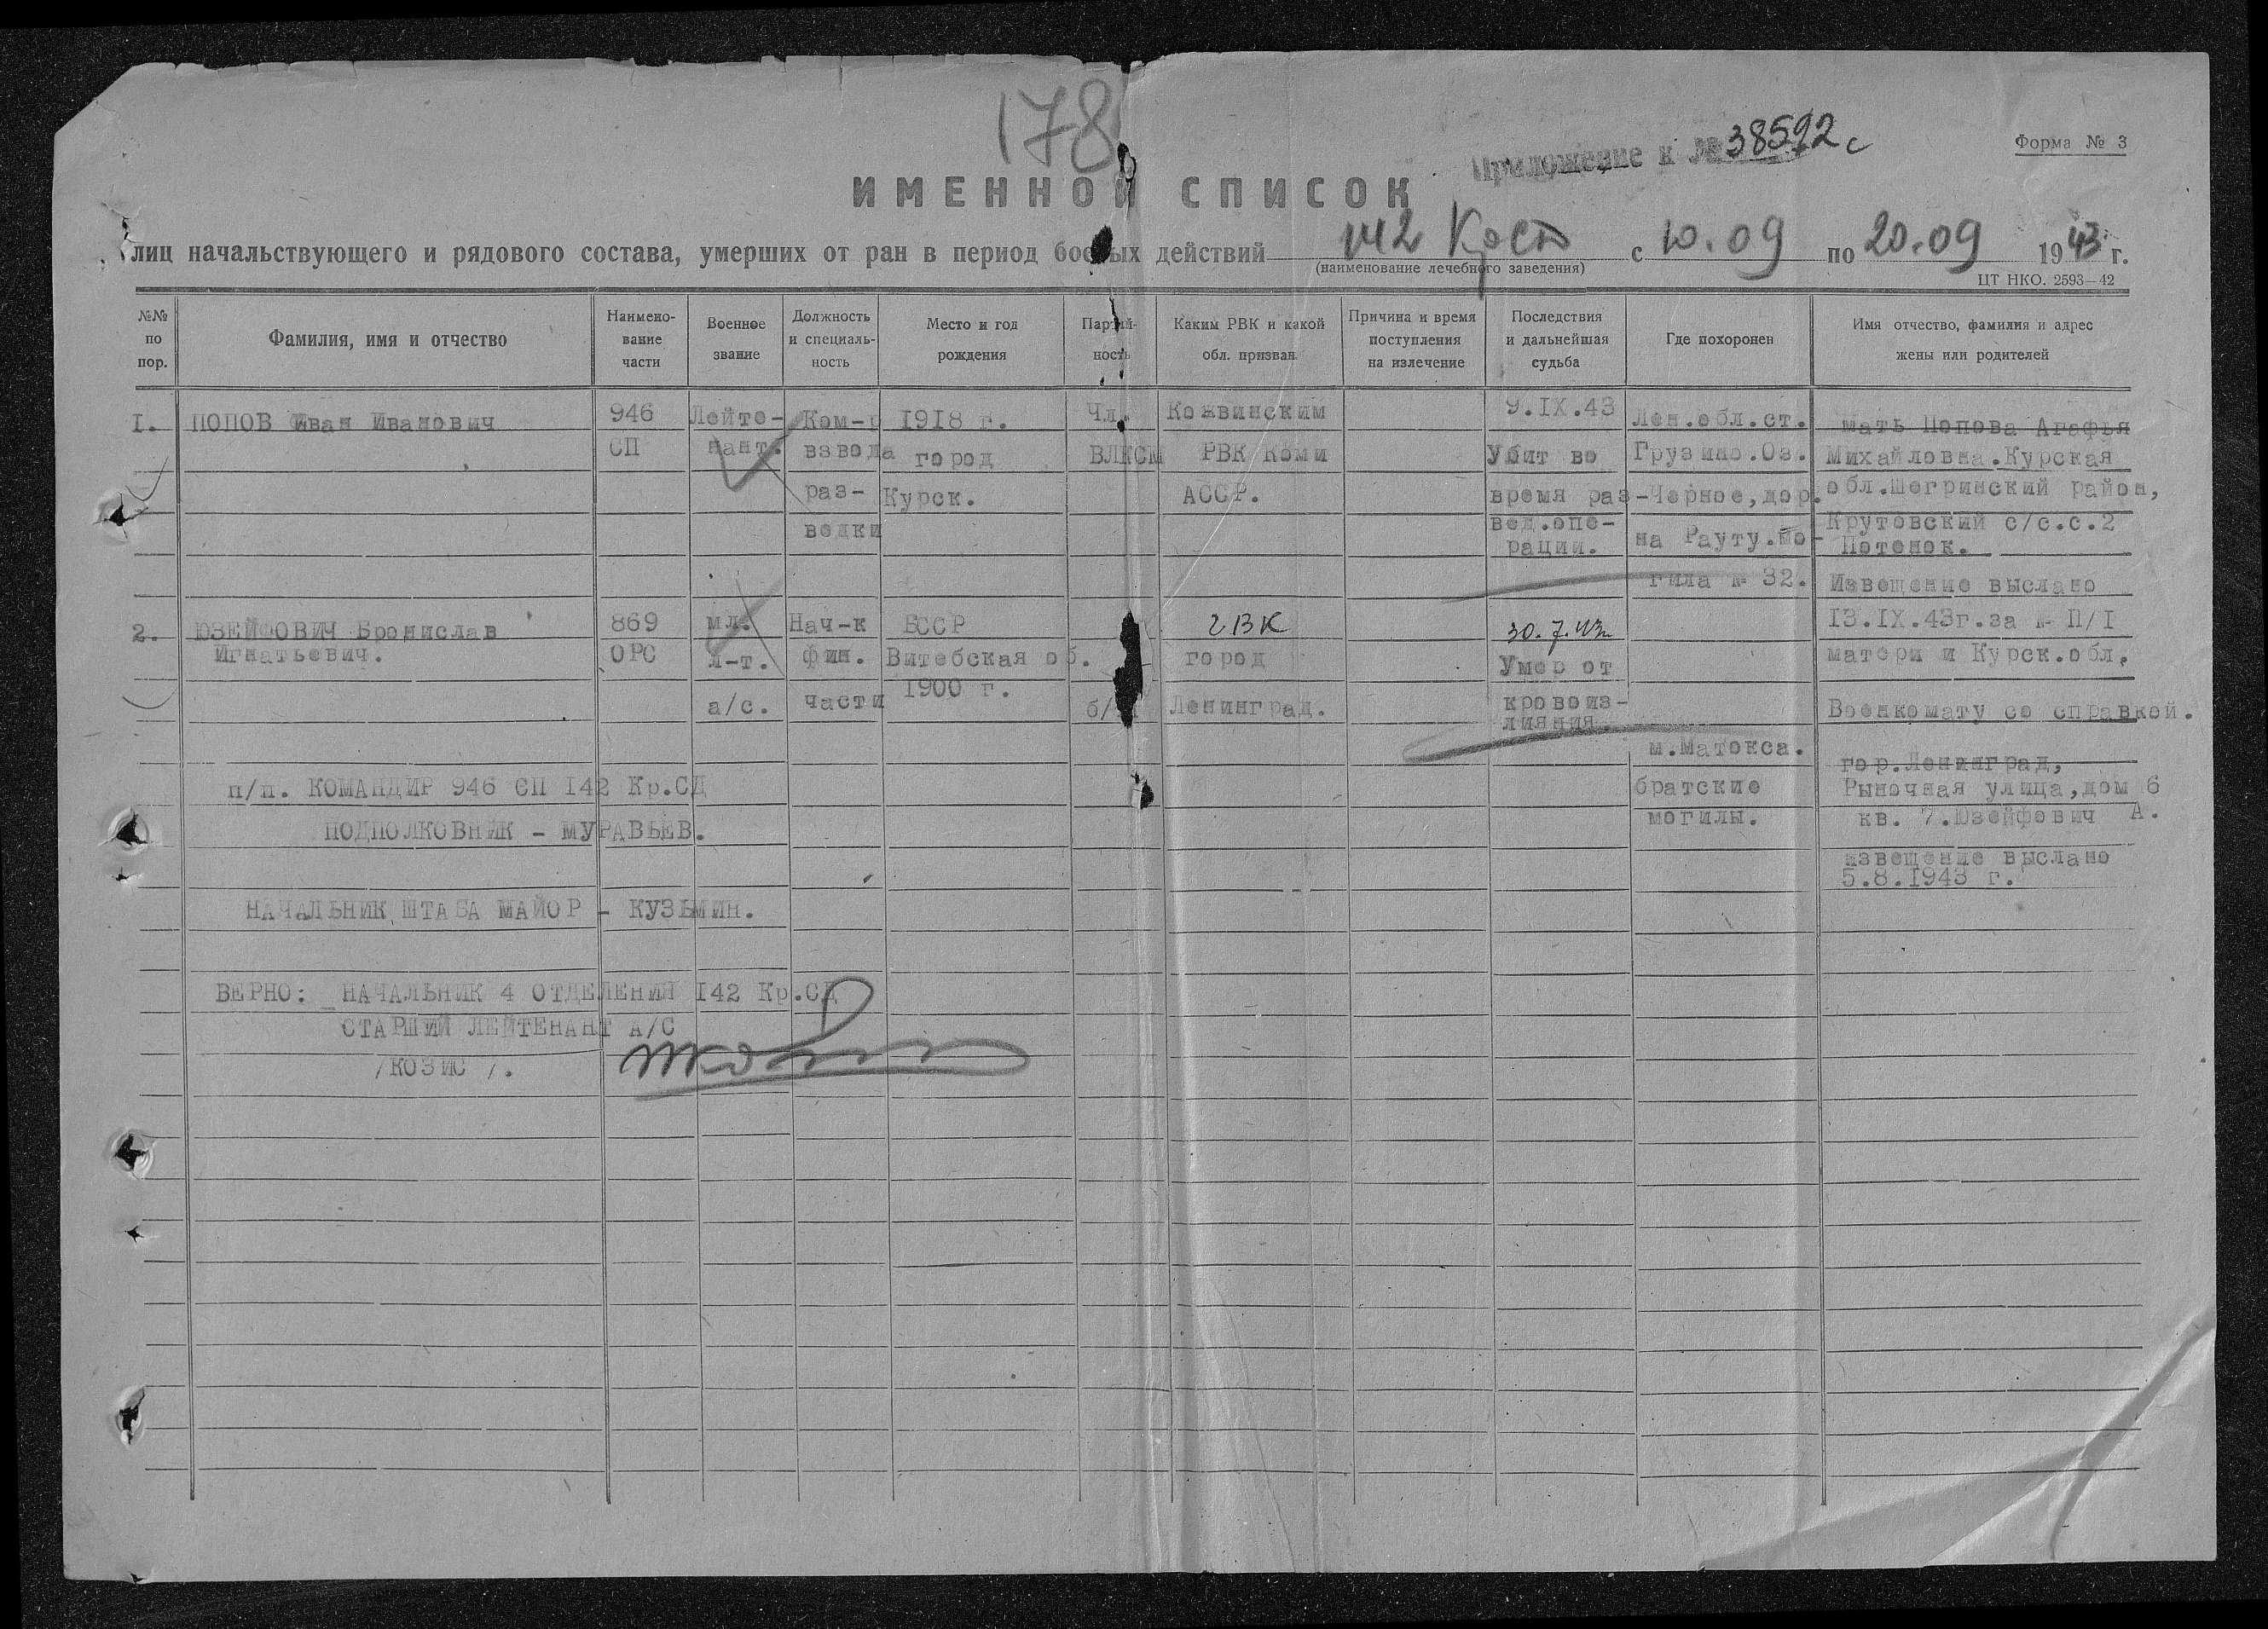 178
Приложение к № 38592 с
Форма № 3
ИМЕННОЙ СПИСОК
лиц начальствующего и рядового состава, умерших от ран в период боевых действий 142 с 10.09 по 20.09 1943 г.
(наименование лечебного заведения)
ЦТ НКО. 2593—42
№№ по пор.
Фамилия, имя и отчество
Наимено-
вание
части
Военное
звание
Должность
и специаль-
ность
Место и год
рождения
Партий-
ность
Каким РВК и какой
обл. призван
Причина и время
поступления
на излечение
Последствия
и дальнейшая
судьба
Где похоронен
Имя отчество, фамилия и адрес
жены или родителей
1.
ПОПОВ Иван Иванович
946
СП
Лейте-
нант.
Ком-р
взвода
раз-
ведки
1918 г.
город
Курск.
Чл.
ВЛКСМ
Кожвинским
РВК Коми
АССР.
9.IX.43
Убит во
время раз-
вед.опе-
рации.
Лен.обл.ст.
Грузино.Оз.
Черное,дор.
на Рауту.Мо-
гила № 32.
мать Попова Агафья
Михайловна.Курская
обл.Шегринский район,
Крутовский с/с.с.2
Потонок.
Извещение выслано
13.IX.43г.за № П/1
матери и Курск.обл.
Военкомату со справкой.
2.
ЮЗЕЙФОВИЧ Бронислав
Игнатьевич.
869
ОРС
мл.
л-т.
а/с.
Нач-к
фин.
части
БССР
Витебская об.
1900 г.
б/п
ГВК
город
Ленинград.
30.7.43г
Умер от
кровоиз-
лияния.
м.Матокса.
братские
могилы.
гор.Ленинград,
Рыночная улица,дом 6
кв. 7.Юзейфович А.
извещение выслано
5.8.1943 г.
п/п. КОМАНДИР 946 СП 142 Кр.СД
ПОДПОЛКОВНИК – МУРАВЬЕВ.
НАЧАЛЬНИК ШТАБА МАЙОР – КУЗЬМИН.
ВЕРНО: НАЧАЛЬНИК 4 ОТДЕЛЕНИЯ 142 Кр.СД
СТАРШИЙ ЛЕЙТЕНАНТ А/С
/КОЗИС /.